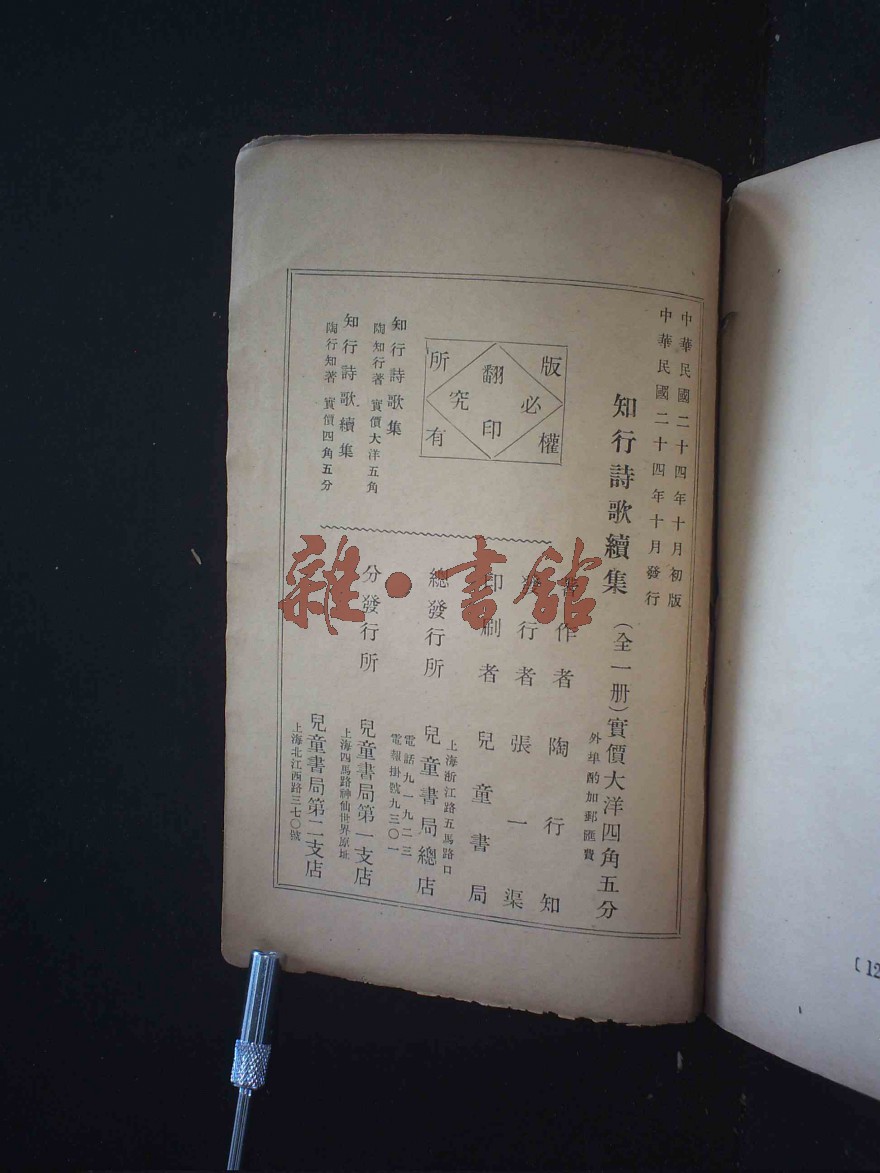 中華民國二十四年十月初版
中華民國二十四年十月發行
知行詩歌續集（全一册）實價大洋四角五分
外埠酌加郵匯費
版權所有
翻印必究
著作者 陶行知
發行者 張一渠
印刷者 兒童書局
上海浙江路五馬路口
總發行所 兒童書局總店
電話九一九二三
電報掛號九三〇一
分發行所 兒童書局第一支店
上海四馬路神仙世界原址
兒童書局第二支店
上海北江西路三七〇號
知行詩歌集
陶知行著 實價大洋五角
知行詩歌續集
陶行知著 實價四角五分
雜·書館
〔12